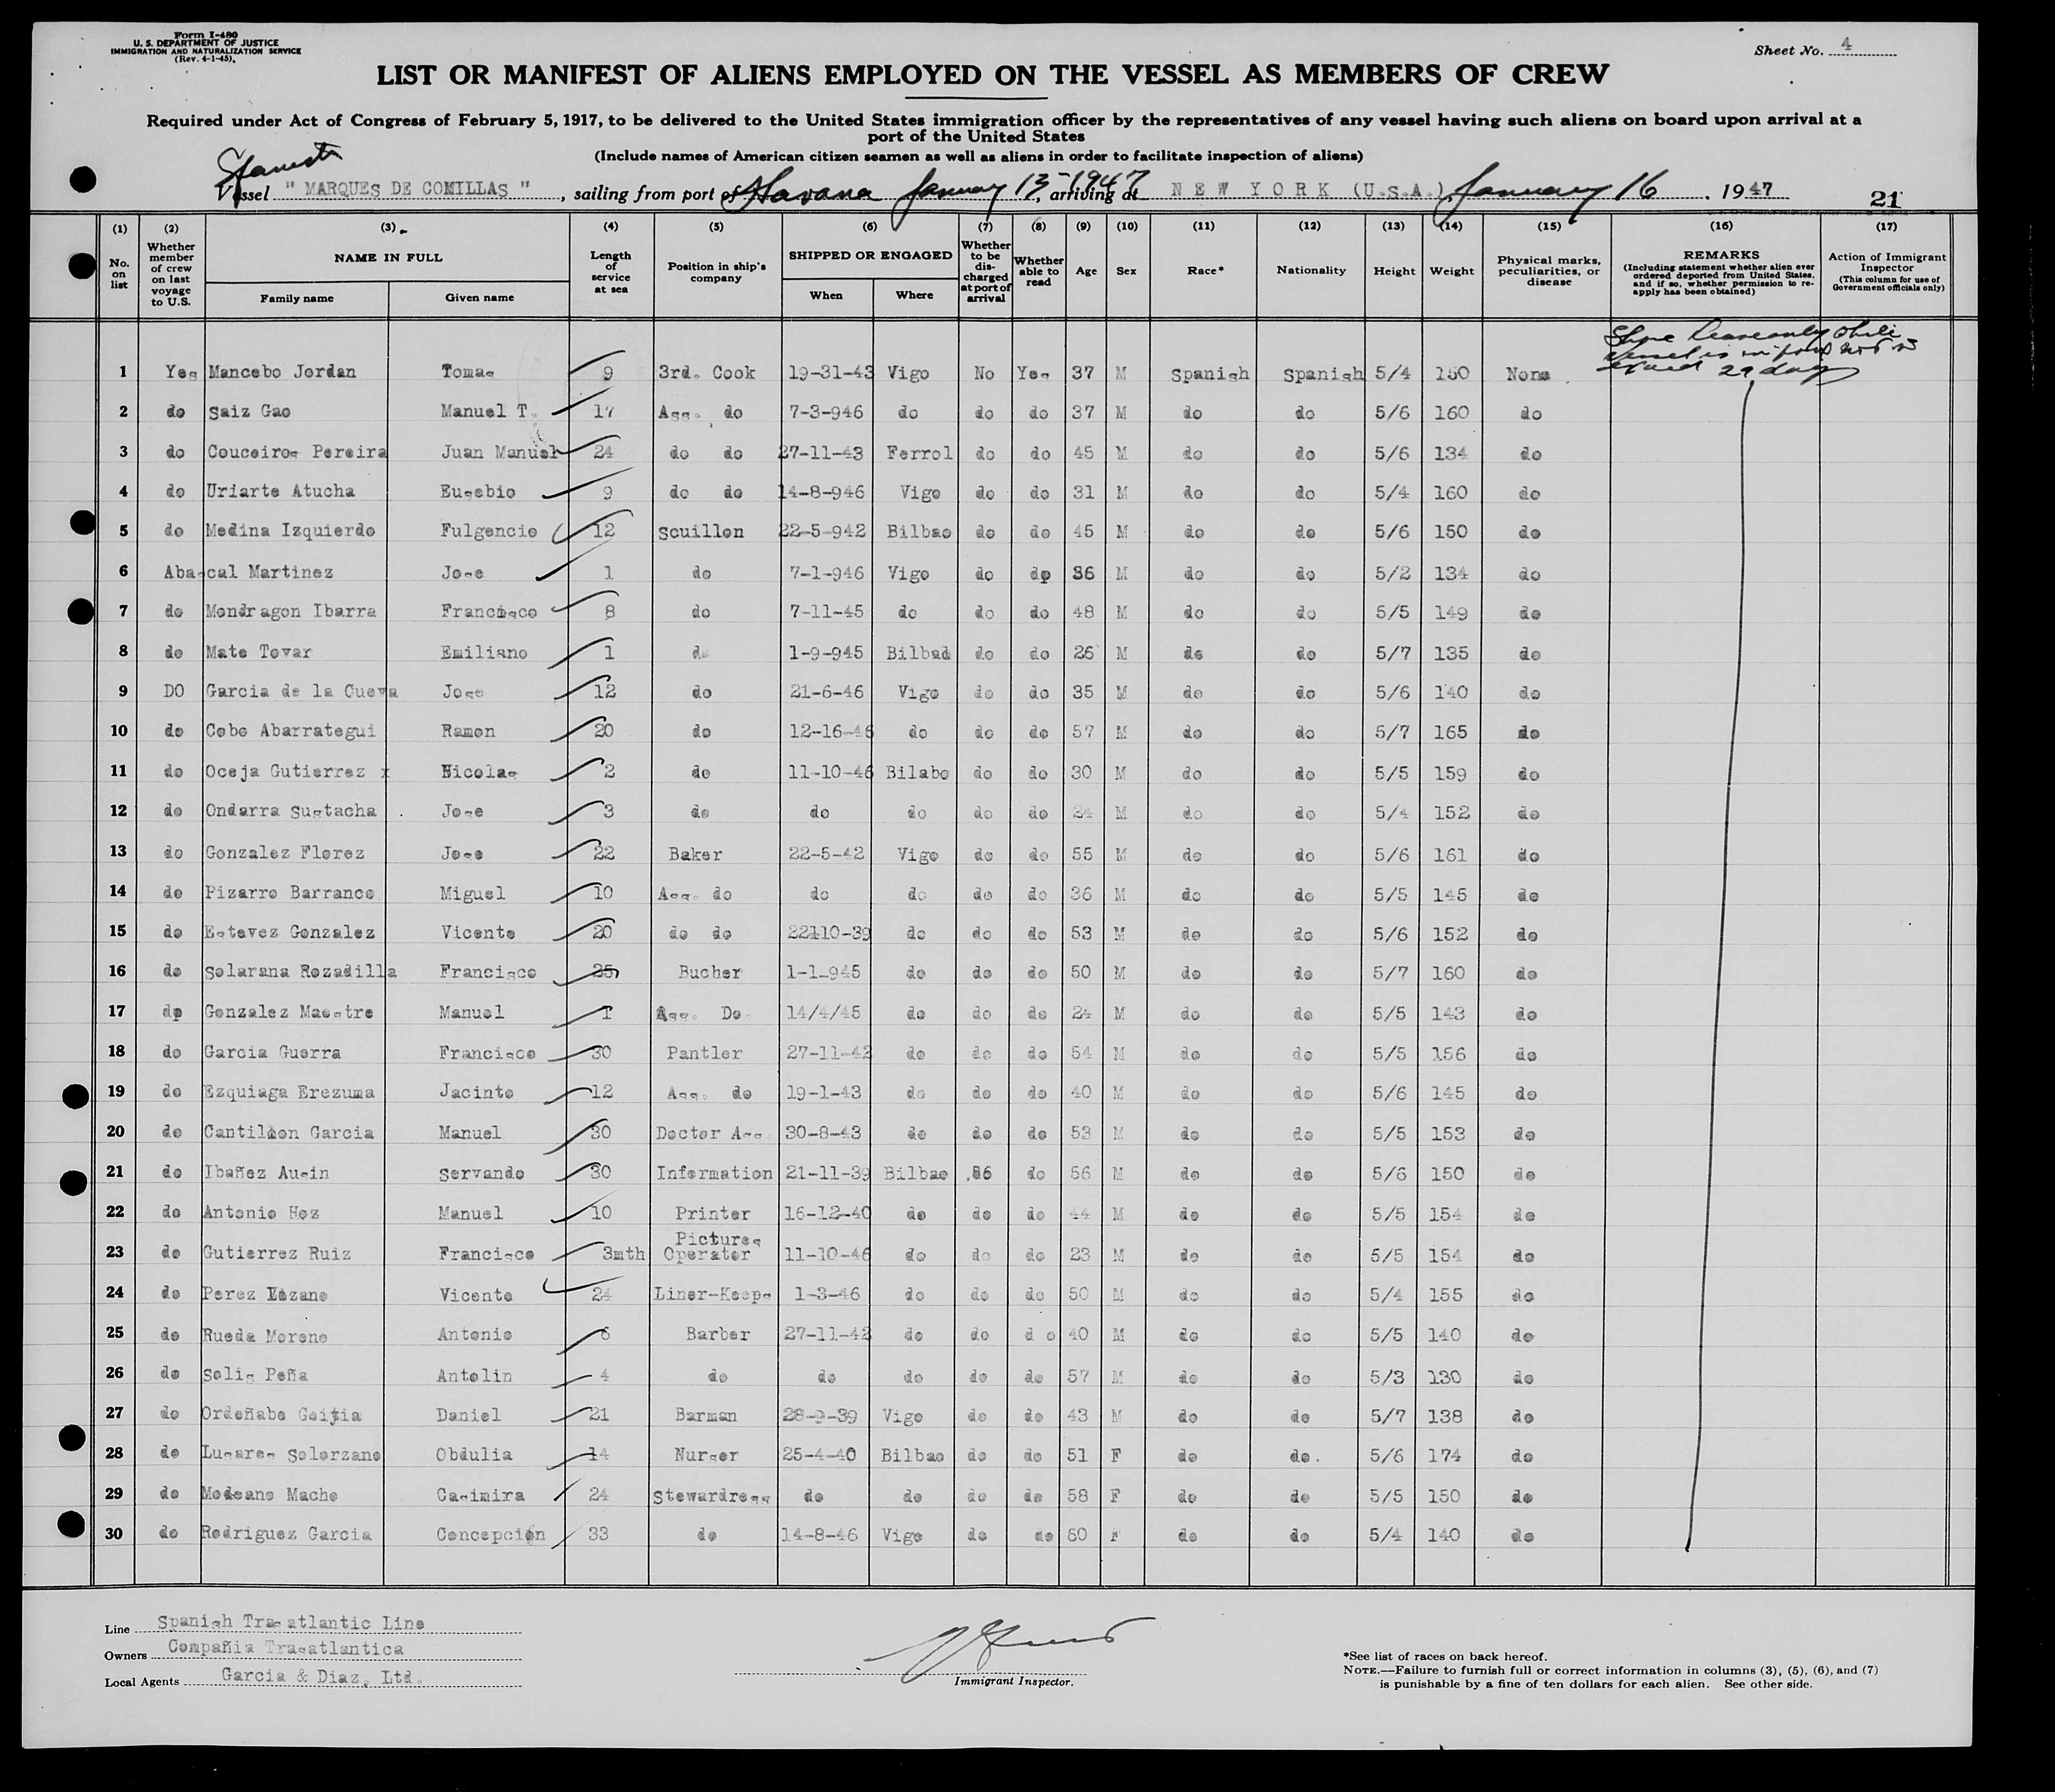 Form I-480
U. S. DEPARTMENT OF JUSTICE
IMMIGRATION AND NATURALIZATION SERVICE
(Rev. 4-1-45)
Sheet No. 4
LIST OR MANIFEST OF ALIENS EMPLOYED ON THE VESSEL AS MEMBERS OF CREW
Required under Act of Congress of February 5, 1917, to be delivered to the United States immigration officer by the representatives of any vessel having such aliens on board upon arrival at a
port of the United States
(Include names of American citizen seamen as well as aliens in order to facilitate inspection of aliens)
Spanish
Vessel " MARQUES DE COMILLAS ", sailing from port of Havana January 13-1947, arriving at NEW YORK (U.S.A.) January 16, 1947
21
(1) (2) (3) (4) (5) (6) (7) (8) (9) (10) (11) (12) (13) (14) (15) (16) (17)
No. on list Whether member of crew on last voyage to U.S. NAME IN FULL Family name Given name Length of service at sea Position in ship's company SHIPPED OR ENGAGED When Where Whether to be discharged at port of arrival Whether able to read Age Sex Race* Nationality Height Weight Physical marks, peculiarities, or disease REMARKS (Including statement whether alien ever ordered deported from United States, and if so, whether permission to re-apply has been obtained) Action of Immigrant Inspector (This column for use of Government officials only)
Shore leave only while
vessel is in port not to
exceed 29 days
1 Yes Mancebo Jordan Tomas 9 3rd. Cook 19-31-43 Vigo No Yes 37 M Spanish Spanish 5/4 150 None
2 do Saiz Gao Manuel T. 17 Ass. do 7-3-946 do do do 37 M do do 5/6 160 do
3 do Couceiros Pereira Juan Manuel 24 do do 27-11-43 Ferrol do do 45 M do do 5/6 134 do
4 do Uriarte Atucha Eusebio 9 do do 14-8-946 Vigo do do 31 M do do 5/4 160 do
5 do Medina Izquierdo Fulgencio 12 Scullion 22-5-942 Bilbao do do 45 M do do 5/6 150 do
6 Abascal Martinez Jose 1 do 7-1-946 Vigo do do 36 M do do 5/2 134 do
7 do Mondragon Ibarra Francisco 8 do 7-11-45 do do do 48 M do do 5/5 149 do
8 do Mate Tovar Emiliano 1 do 1-9-945 Bilbad do do 26 M do do 5/7 135 do
9 DO Garcia de la Cueva Jose 12 do 21-6-46 Vigo do do 35 M do do 5/6 140 do
10 do Cobo Abarrategui Ramon 20 do 12-16-46 do do do 57 M do do 5/7 165 do
11 do Oceja Gutierrez x Nicolas 2 do 11-10-46 Bilabo do do 30 M do do 5/5 159 do
12 do Ondarra Sustacha Jose 3 do do do do do 24 M do do 5/4 152 do
13 do Gonzalez Florez Jose 22 Baker 22-5-42 Vigo do do 55 M do do 5/6 161 do
14 do Pizarro Barranco Miguel 10 Ass. do do do do do 36 M do do 5/5 145 do
15 do Estevez Gonzalez Vicente 20 do do 22110-39 do do do 53 M do do 5/6 152 do
16 do Solarana Rozadilla Francisco 25 Bucher 1-1-945 do do do 50 M do do 5/7 160 do
17 dp Gonzalez Maestre Manuel 1 Ass. Do. 14/4/45 do do do 24 M do do 5/5 143 do
18 do Garcia Guerra Francisco 30 Pantler 27-11-42 do do do 54 M do do 5/5 156 do
19 do Ezquiaga Erezuma Jacinto 12 Ass. do 19-1-43 do do do 40 M do do 5/6 145 do
20 do Cantillon Garcia Manuel 30 Doctor Ass. 30-8-43 do do do 53 M do do 5/5 153 do
21 do Ibañez Ausin Servando 30 Information 21-11-39 Bilbao do 56 M do do 5/6 150 do
22 do Antonio Hoz Manuel 10 Printer 16-12-40 do do do 44 M do do 5/5 154 do
23 do Gutierrez Ruiz Francisco 3mth Pictures Operator 11-10-46 do do do 23 M do do 5/5 154 do
24 do Perez Vicente 24 Liner-Keeps 1-3-46 do do do 50 M do do 5/4 155 do
25 do Rueda Moreno Antonio 6 Barber 27-11-42 do do d o 40 M do do 5/5 140 do
26 do Solis Peña Antolin 4 do do do do do 57 M do do 5/3 130 do
27 do Ordeñabo Goitia Daniel 21 Barman 28-9-39 Vigo do do 43 M do do 5/7 138 do
28 do Lusares Solorzano Obdulia 14 Nurser 25-4-40 Bilbao do do 51 F do do. 5/6 174 do
29 do Macho Casimira 24 Stewardress do do do do 58 F do do 5/5 150 do
30 do Rodriguez Garcia Concepción 33 do 14-8-46 Vigo do do 60 F do do 5/4 140 do
Line Spanish Trasatlantic Line
Owners Compañia Trasatlantica
Local Agents Garcia & Diaz, Ltd.
Immigrant Inspector.
*See list of races on back hereof.
NOTE.—Failure to furnish full or correct information in columns (3), (5), (6), and (7)
is punishable by a fine of ten dollars for each alien. See other side.